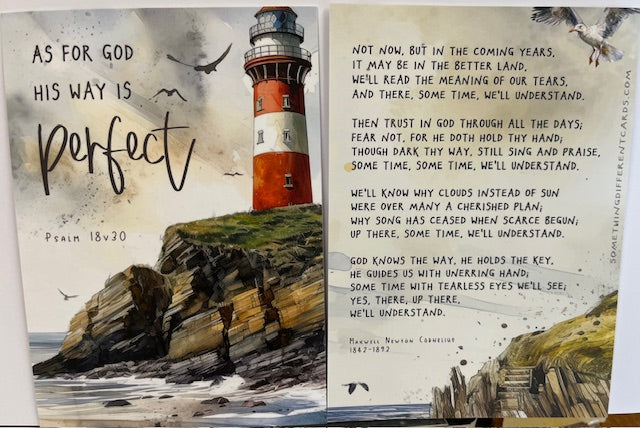 AS FOR GOD
HIS WAY IS
perfect
PSALM 18V30
NOT NOW, BUT IN THE COMING YEARS,
IT MAY BE IN THE BETTER LAND,
WE'LL READ THE MEANING OF OUR TEARS,
AND THERE, SOME TIME, WE'LL UNDERSTAND.
THEN TRUST IN GOD THROUGH ALL THE DAYS;
FEAR NOT, FOR HE DOTH HOLD THY HAND;
THOUGH DARK THY WAY, STILL SING AND PRAISE,
SOME TIME, SOME TIME, WE'LL UNDERSTAND.
WE'LL KNOW WHY CLOUDS INSTEAD OF SUN
WERE OVER MANY A CHERISHED PLAN;
WHY SONG HAS CEASED WHEN SCARCE BEGUN;
UP THERE, SOME TIME, WE'LL UNDERSTAND.
GOD KNOWS THE WAY, HE HOLDS THE KEY,
HE GUIDES US WITH UNERRING HAND;
SOME TIME WITH TEARLESS EYES WE'LL SEE;
YES, THERE, UP THERE,
WE'LL UNDERSTAND.
MAXWELL NEWTON CORNELIUS
1842-1892
SOMETHINGDIFFERENTCARDS.COM